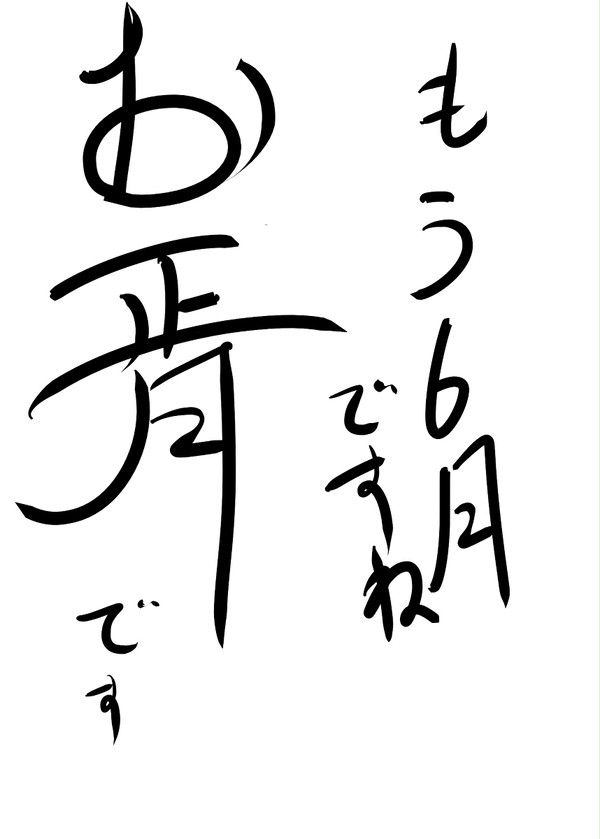 もう6月
ですね
お正月
です